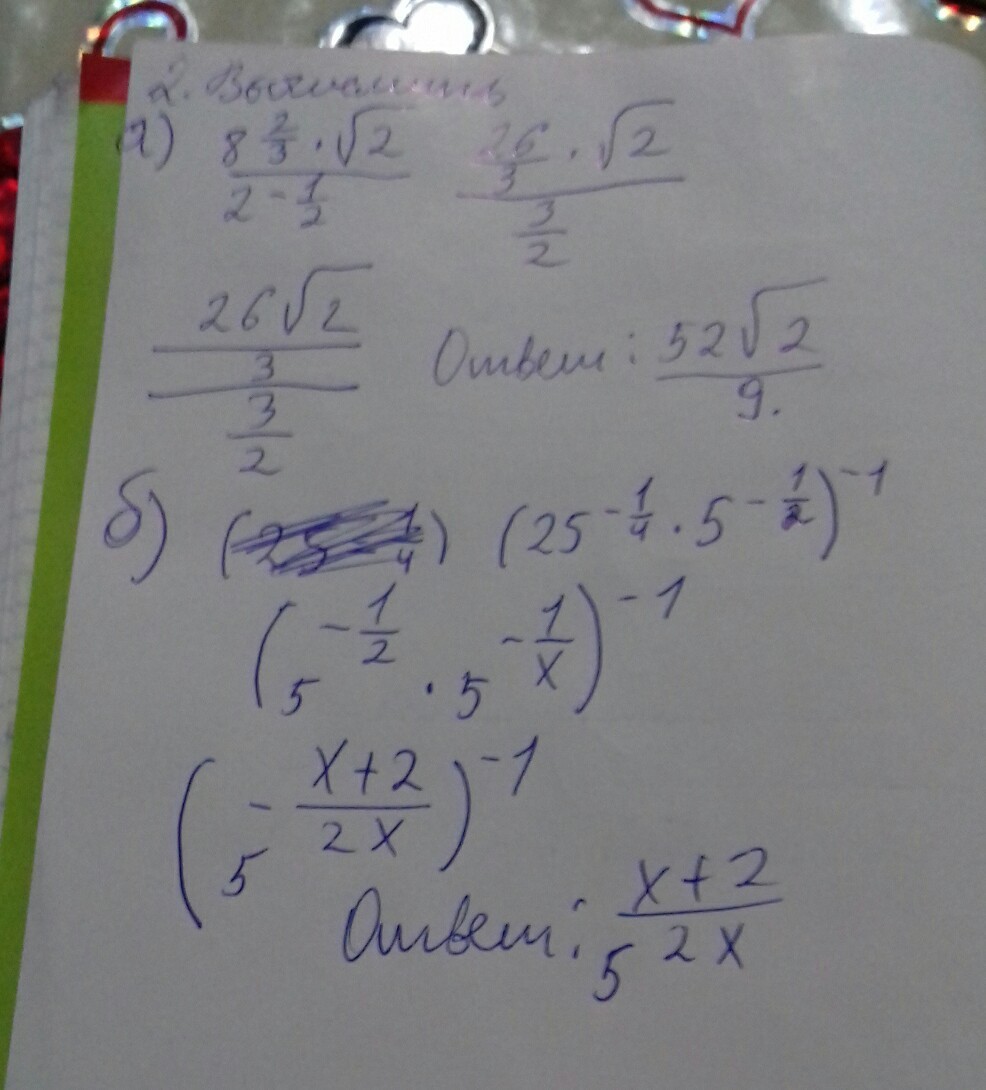 2. Вычислить
а) (8 2/3 · √2)/(2 - 1/2) (26/3 · √2)/(3/2)
(26√2/3)/(3/2) Ответ: 52√2/9.
б) (25^(-1/4) · 5^(-1/2))^(-1)
(5^(-1/2) · 5^(-1/x))^(-1)
(5^(-(x+2)/(2x)))^(-1)
Ответ: 5^((x+2)/(2x))